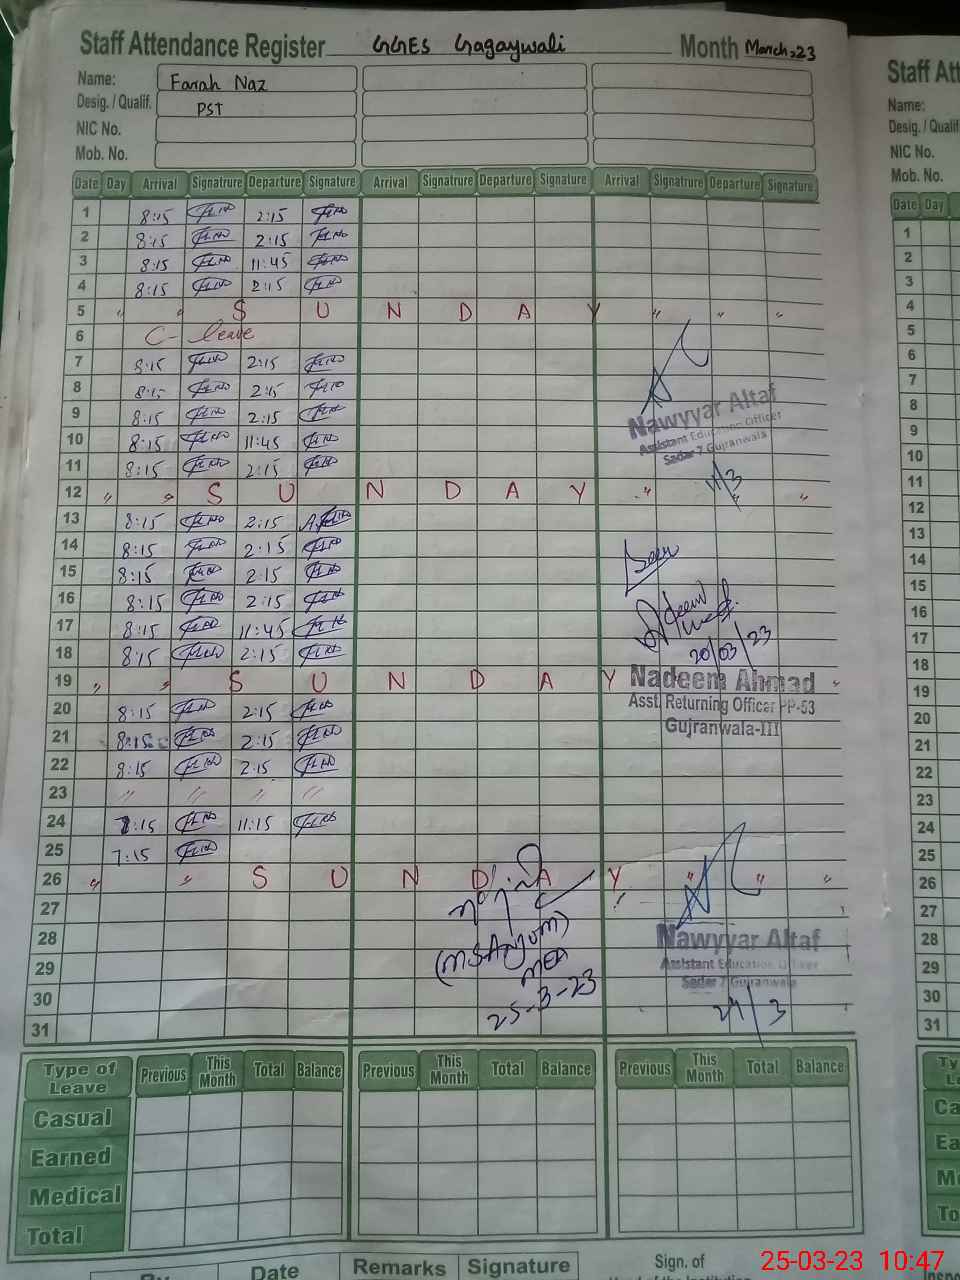 Staff Attendance Register GGES Gagaywali Month March-23
Name: Farah Naz
Desig. / Qualif. PST
NIC No.
Mob. No.
Date Day Arrival Signatrure Departure Signature Arrival Signatrure Departure Signature Arrival Signatrure Departure Signature
1 8:15 2:15
2 8:15 2:15
3 8:15 11:45
4 8:15 2:15
5 " " S U N D A Y " " "
6 C- leave
7 8:15 2:15
8 8:15 2:15
9 8:15 2:15
10 8:15 11:45
11 8:15 2:15
12 " " S U N D A Y " " "
13 8:15 2:15
14 8:15 2:15
15 8:15 2:15
16 8:15 2:15
17 8:15 11:45
18 8:15 2:15
19 " " S U N D A Y "
20 8:15 2:15
21 8:15 2:15
22 8:15 2:15
23 " " " "
24 7:15 11:15
25 7:15
26 " " S U N D A Y " " "
27
28
29
30
31
Nawyyar Altaf
Assistant Education Officer
Sadar 7 Gujranwala
11/3
Seen
20/03/23
Nadeem Ahmad
Asst. Returning Officer PP-53
Gujranwala-III
(MSAnjum)
MEA
25-3-23
Nawyyar Altaf
Assistant Education Officer
Sadar 7 Gujranwala
24/3
Type of Leave Previous This Month Total Balance Previous This Month Total Balance Previous This Month Total Balance
Casual
Earned
Medical
Total
By Date Remarks Signature Sign. of
Staff Att
Name:
Desig. / Qualif
NIC No.
Mob. No.
Date Day
1
2
3
4
5
6
7
8
9
10
11
12
13
14
15
16
17
18
19
20
21
22
23
24
25
26
27
28
29
30
31
25-03-23 10:47